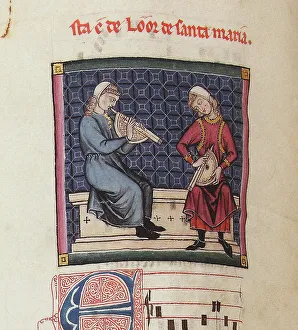 sta e de Loor de santa maria.
E